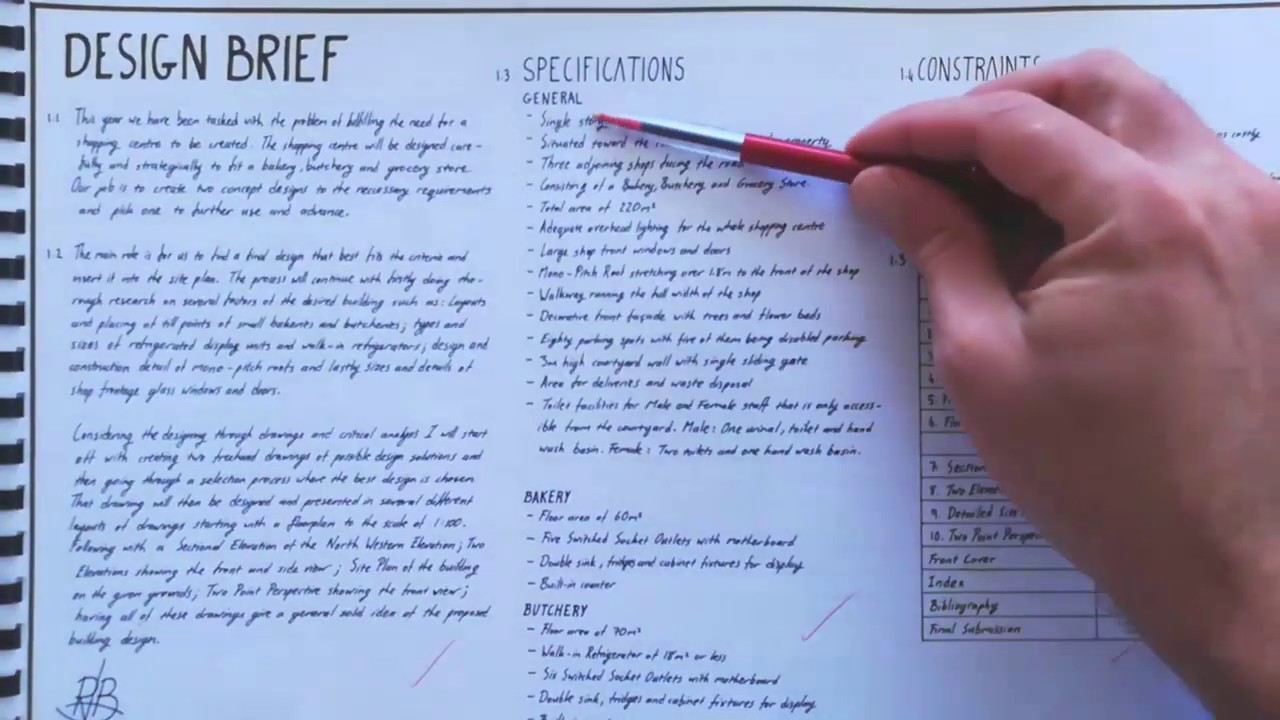 DESIGN BRIEF
1.1 This year we have been tasked with the problem of fulfilling the need for a
shopping centre to be created. The shopping centre will be designed care-
fully and strategically to fit a bakery, butchery and grocery store.
Our job is to create two concept designs to the necessary requirements
and pick one to further use and advance.
1.2 The main role is for us to find a final design that best fits the criteria and
insert it into the site plan. The process will continue with firstly doing tho-
rough research on several factors of the desired building such as: Layouts
and placing of till points of small bakeries and butcheries; types and
sizes of refrigerated display units and walk-in refrigerators; design and
construction detail of mono-pitch roofs and lastly sizes and details of
shop frontage glass windows and doors.
Considering the designing through drawings and critical analysis I will start
off with creating two freehand drawings of possible design solutions and
then going through a selection process where the best design is chosen.
That drawing will then be designed and presented in several different
layouts of drawings starting with a floorplan to the scale of 1:100.
Following with a Sectional Elevation of the North Western Elevation; Two
Elevations showing the front and side view; Site Plan of the building
on the given grounds; Two Point Perspective showing the front view;
having all of these drawings give a general solid idea of the proposed
building design.
1.3 SPECIFICATIONS
GENERAL
- Single
- Situated toward the property
- Three adjoining shops facing the road
- Consisting of a Bakery, Butchery and Grocery Store.
- Total area of 220m²
- Adequate overhead lighting for the whole shopping centre
- Large shop front windows and doors
- Mono-Pitch Roof stretching over 1.8m to the front of the shop
- Walkway running the full width of the shop
- Decorative front façade with trees and flower beds
- Eighty parking spots with five of them being disabled parking
- 3m high courtyard wall with single sliding gate
- Area for deliveries and waste disposal
- Toilet facilities for Male and Female staff that is only access-
ible from the courtyard. Male: One urinal, toilet and hand
wash basin. Female: Two toilets and one hand wash basin.
BAKERY
- Floor area of 60m²
- Five Switched Socket Outlets with motherboard
- Double sink, fridges and cabinet fixtures for display
- Built-in counter
BUTCHERY
- Floor area of 70m²
- Walk-in Refrigerator of 18m² or less
- Six Switched Socket Outlets with motherboard
- Double sink, fridges and cabinet fixtures for display
1.4 CONSTRAINTS
costly
1.5
4.
5.
6.
7. Section
8. Two
9. Detailed Site
10. Two Point
Front Cover
Index
Bibliography
Final Submission